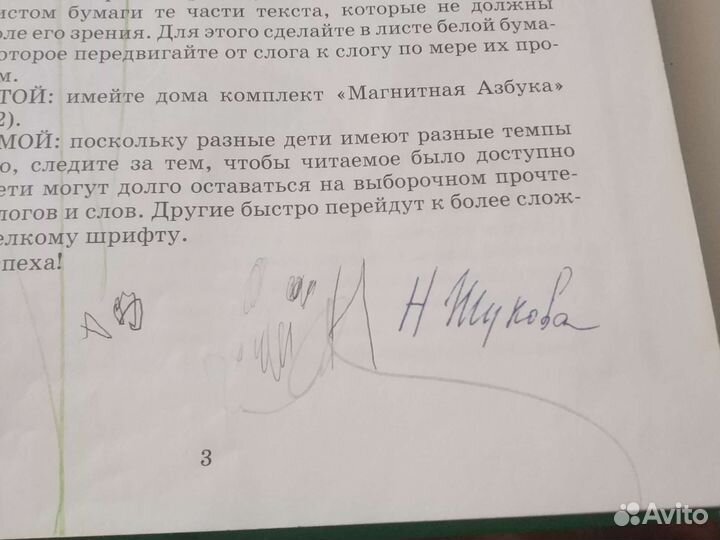 истом бумаги те части текста, которые не должны
оле его зрения. Для этого сделайте в листе белой бума-
оторое передвигайте от слога к слогу по мере их про-
м.
ТОЙ: имейте дома комплект «Магнитная Азбука»
2).
МОЙ: поскольку разные дети имеют разные темпы
о, следите за тем, чтобы читаемое было доступно
ети могут долго оставаться на выборочном прочте-
логов и слов. Другие быстро перейдут к более слож-
елкому шрифту.
пеха!
Н Жукова
3
Avito